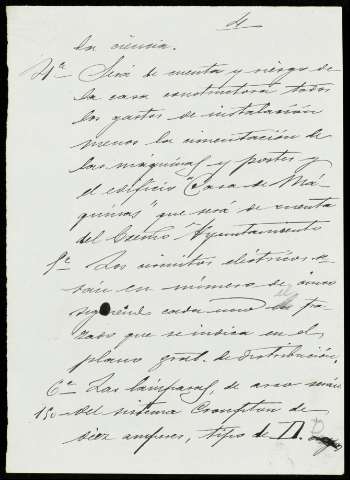 4
la ciencia.
4ª Será de cuenta y riesgo de
la casa constructora todos
los gastos de instalación
menos la cimentación de
las máquinas y postes y
el edificio "Casa de Má-
quinas" que será de cuenta
del Excmo Ayuntamiento
5ª Los circuitos eléctricos se-
rán en número de cinco
siguiend cada uno el tra-
zado que se indica en el
plano gral. de distribución,
6ª Las lámparas, de arco serán
150 del sistema Crompton de
diez amperes, tipo de D.